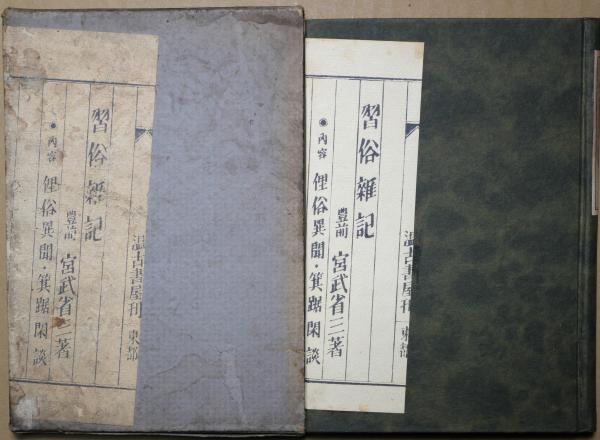 温古書屋刊 東都
習俗雜記
豐前 宮武省三著
●內容 俚俗異聞・箕踞閑談
温古書屋刊 東都
習俗雜記
豐前 宮武省三著
●內容 俚俗異聞・箕踞閑談